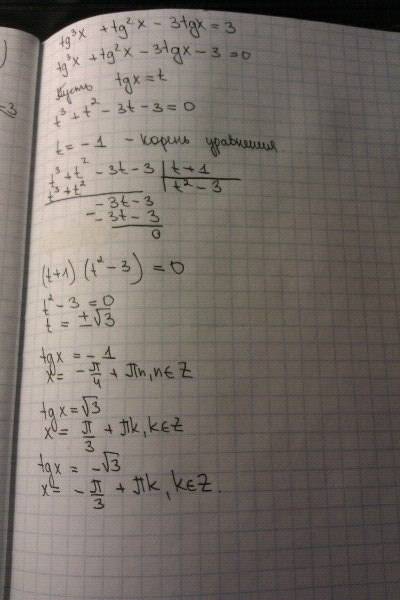 tg³x + tg²x - 3tgx = 3
tg³x + tg²x - 3tgx - 3 = 0
Пусть tgx = t
t³ + t² - 3t - 3 = 0
t = -1 - корень уравнения
t³ + t² - 3t - 3 | t + 1
t³ + t² | t² - 3
- 3t - 3
- 3t - 3
0
(t+1)(t² - 3) = 0
t² - 3 = 0
t = ±√3
tgx = -1
x = -π/4 + πn, n∈Z
tgx = √3
x = π/3 + πk, k∈Z
tgx = -√3
x = -π/3 + πk, k∈Z.